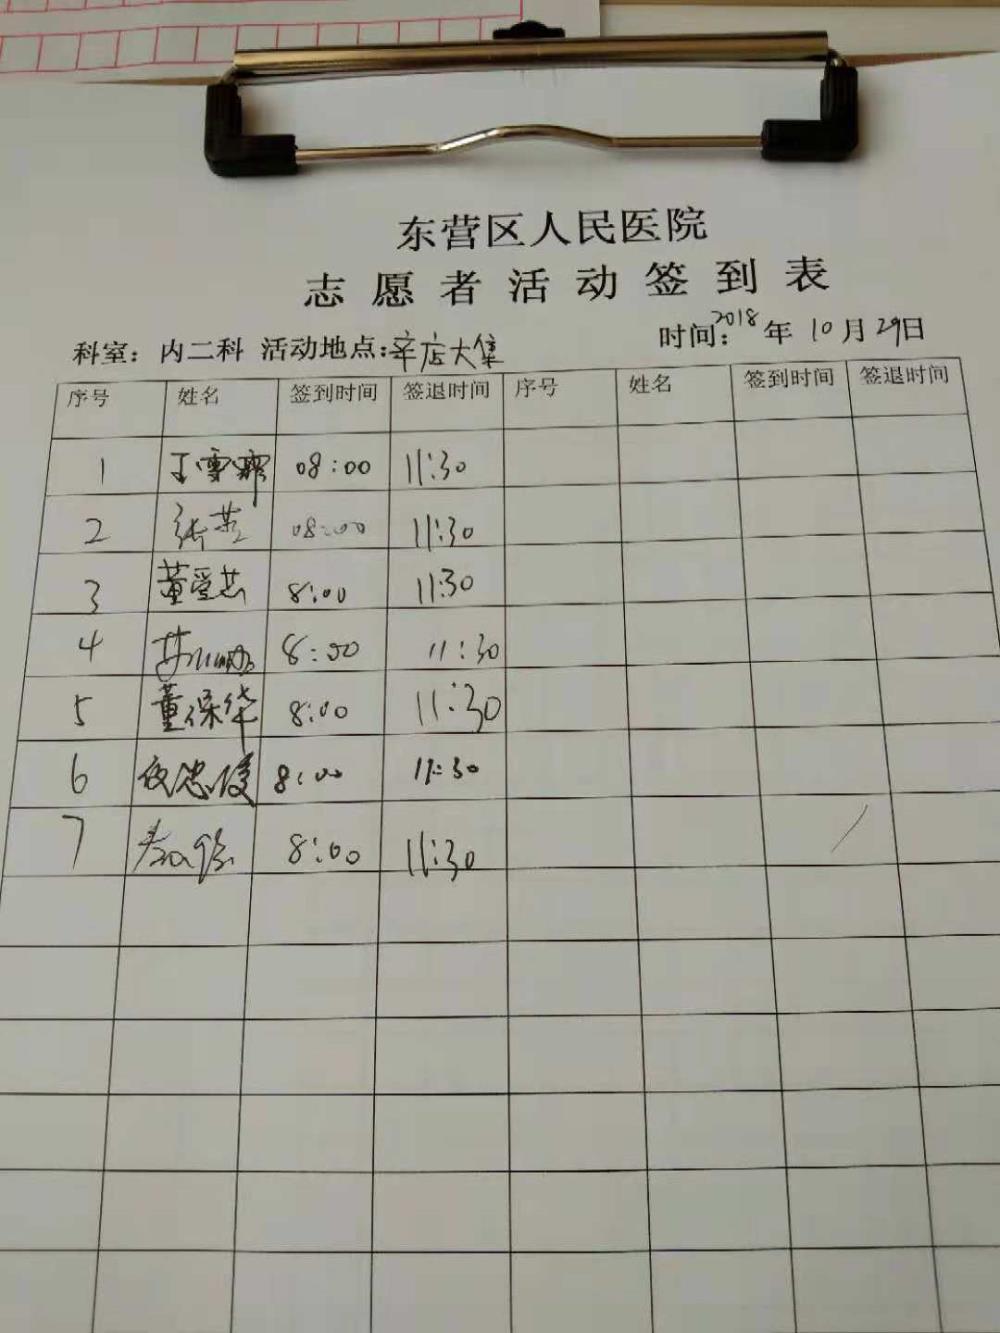 东营区人民医院
志愿者活动签到表
科室：内二科 活动地点：辛店大集 时间：2018年10月29日
序号 姓名 签到时间 签退时间 序号 姓名 签到时间 签退时间
1 08:00 11:30
2 张芸 08:00 11:30
3 董爱芸 8:00 11:30
4 8:00 11:30
5 董保华 8:00 11:30
6 8:00 11:30
7 8:00 11:30